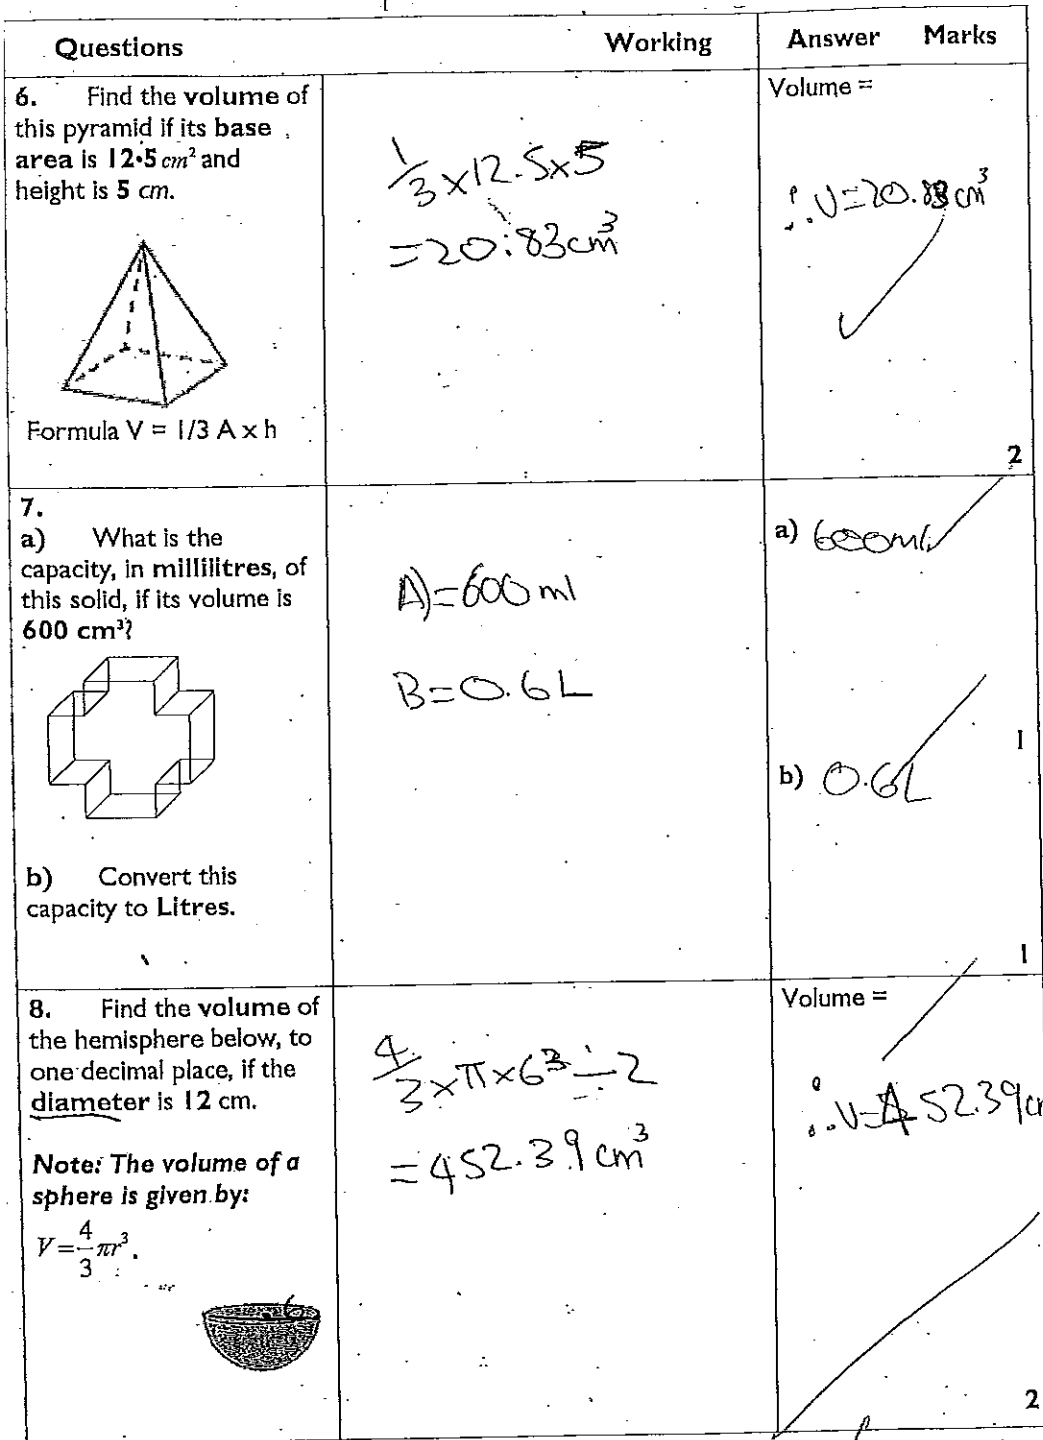 Questions
Working
Answer Marks
6. Find the volume of
this pyramid if its base
area is 12•5 cm² and
height is 5 cm.
Formula V = 1/3 A x h
1/3 × 12.5 × 5
= 20.83 cm³
Volume =
∴ V = 20.83 cm³
2
7.
a) What is the
capacity, in millilitres, of
this solid, if its volume is
600 cm³?
b) Convert this
capacity to Litres.
A) = 600 ml
B = 0.6 L
a) 600 ml
1
b) 0.6 L
1
8. Find the volume of
the hemisphere below, to
one decimal place, if the
diameter is 12 cm.
Note: The volume of a
sphere is given by:
V = 4/3 πr³.
6
4/3 × π × 6³ ÷ 2
= 452.39 cm³
Volume =
∴ V = 452.39 cm
2